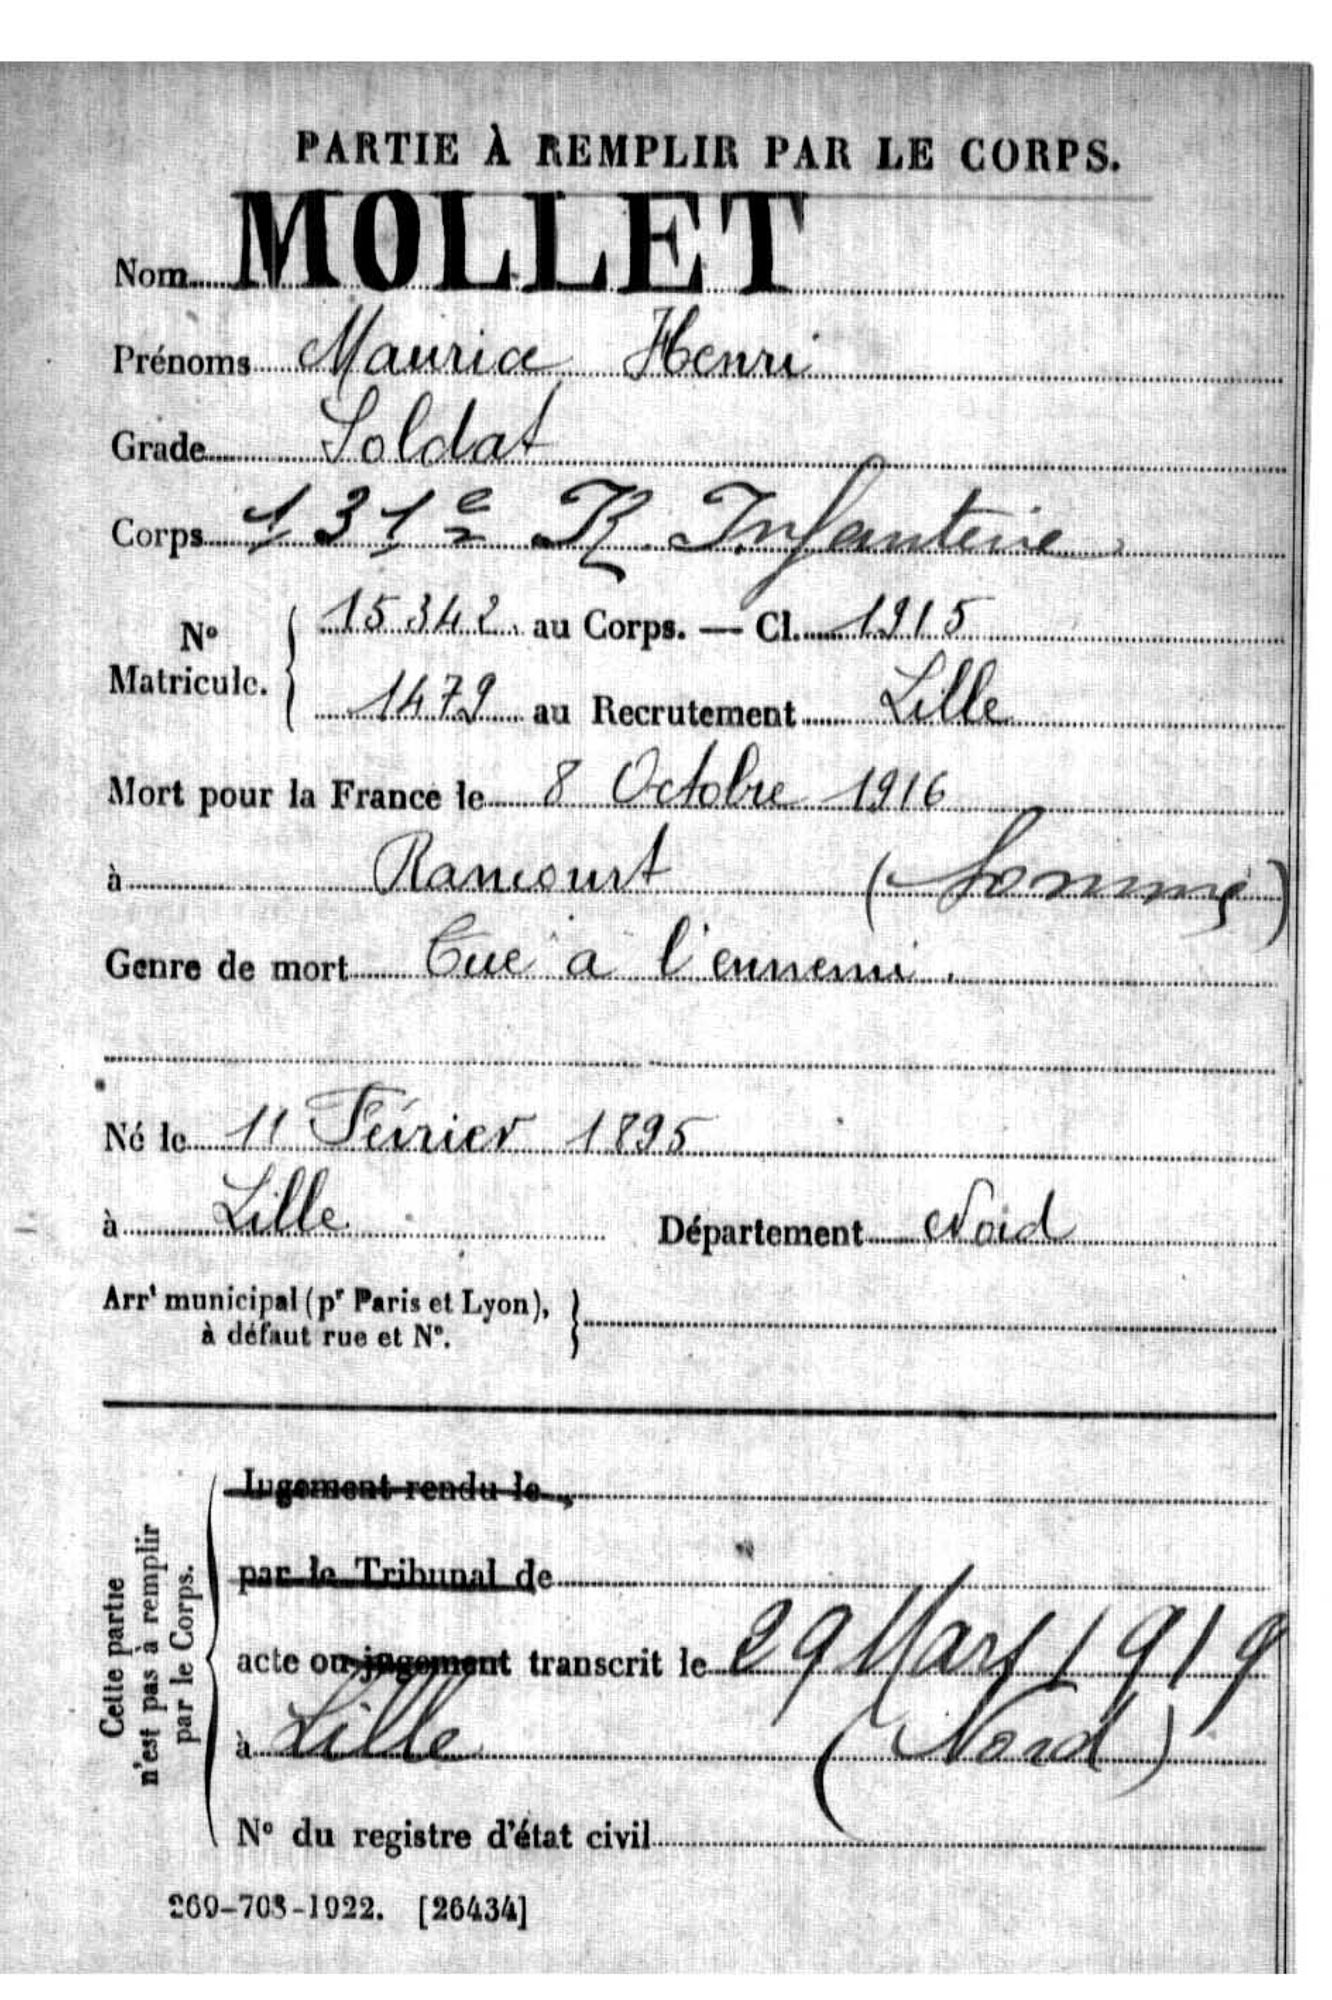 PARTIE À REMPLIR PAR LE CORPS.
Nom MOLLET
Prénoms Maurice Henri
Grade Soldat
Corps 131e R. Infanterie
No Matricule. { 15342 au Corps. — Cl. 1915
1479 au Recrutement Lille
Mort pour la France le 8 Octobre 1916
à Rancourt (Somme)
Genre de mort Tué à l'ennemi.
Né le 11 Février 1895
à Lille Département Nord
Arrt municipal (pr Paris et Lyon), à défaut rue et No. }
Cette partie n'est pas à remplir par le Corps.
Jugement rendu le
par le Tribunal de
acte ou jugement transcrit le 29 Mars 1919
à Lille (Nord)
No du registre d'état civil
269-708-1922. [26434]